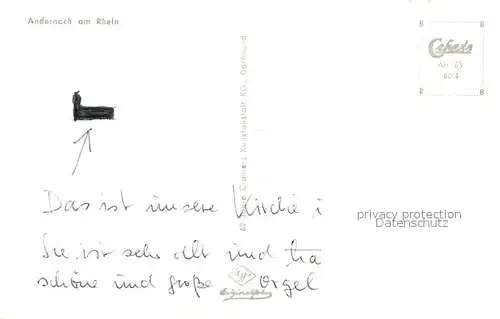 Andernach am Rhein
Cekade
An 63
60 3
B B
R B
Cramers Kunstanstalt KG., Dortmund
Das ist unsere Kirche i
Sie ist sehr alt und
schöne und große Orgel
privacy protection
Datenschutz